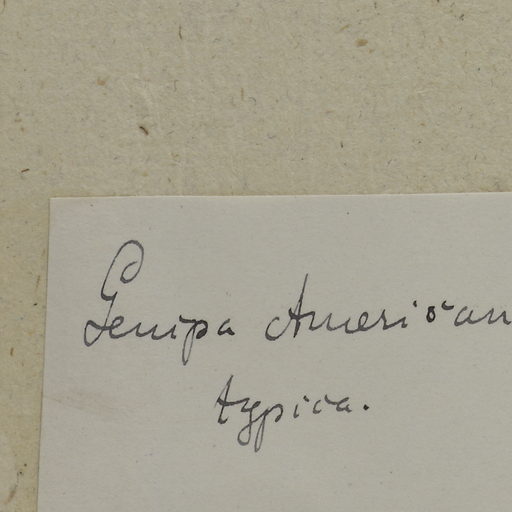 Genipa American
typica.